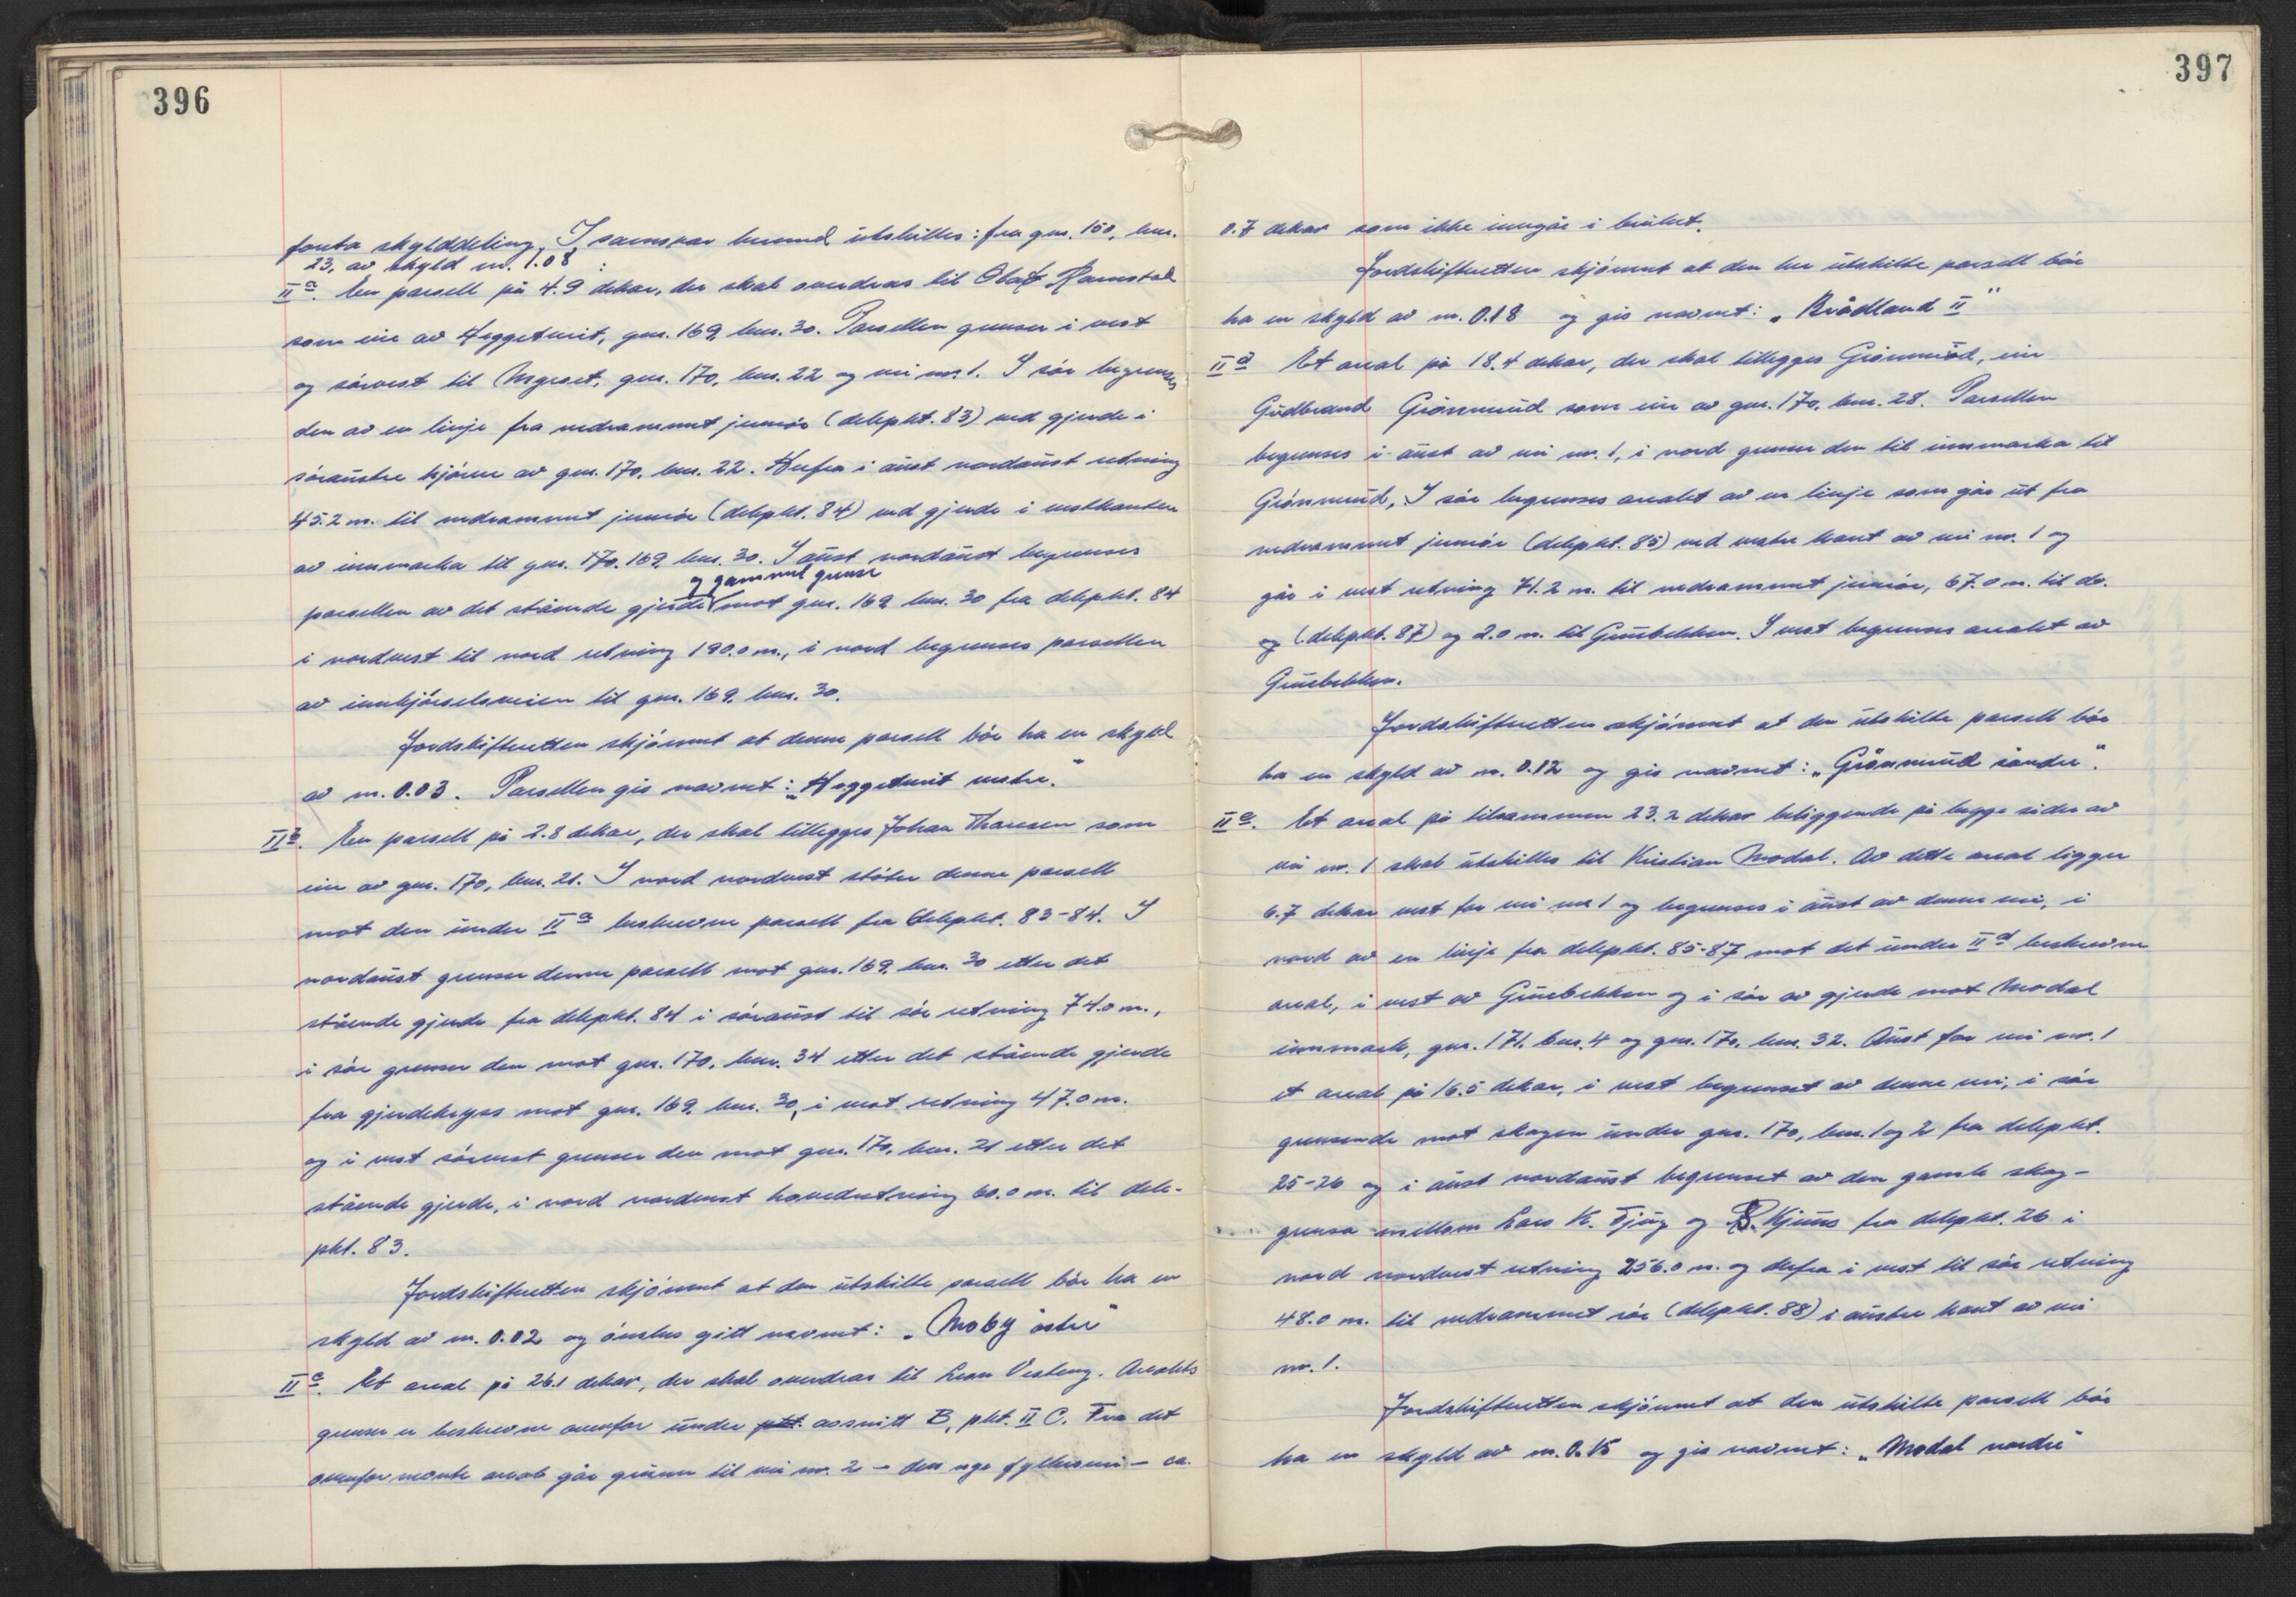 396
foreta skylddeling. I samsvar hermed utskilles: fra gnr. 150, bnr.
23, av skyld m. 1.08 :
IIa. En parsell på 4.9 dekar, der skal overdras til Olaf Ramstad
som eier av Heggetveit, gnr. 169, bnr. 30. Parsellen grenser i vest
og sørvest til Myreset, gnr. 170, bnr. 22 og vei nr. 1. I sør begrenses
den av en linje fra nedrammet jernrör (delepkt. 83) ved gjerde i
søraustre hjörne av gnr. 170, bnr. 22. Herfra i aust nordaust retning
45.2 m. til nedrammet jernrör (delepkt. 84) ved gjerde i vestkanten
av innmarka til gnr. 170. 169, bnr. 30. I aust nordaust begrenses
og gammel grense
parsellen av det stående gjerde mot gnr. 169 bnr. 30 fra delepkt. 84
i nordvest til nord retning 190.0 m., i nord begrenses parsellen
av innkjörselsveien til gnr. 169, bnr. 30.
Jordskifteretten skjönnet at denne parsell bör ha en skyld
av m. 0.03. Parsellen gis navnet: „Heggetveit vestre."
IIb. En parsell på 2.8 dekar, der skal tillegges Johan Thoresen som
eier av gnr. 170, bnr. 21. I nord nordvest stöter denne parsell
mot den under IIa beskrevne parsell fra delepkt. 83-84. I
nordaust grenser denne parsell mot gnr. 169, bnr. 30 etter det
stående gjerde fra delepkt. 84 i söraust til sör retning 74.0 m.,
i sör grenser den mot gnr. 170, bnr. 34 etter det stående gjerde
fra gjerdekryss mot gnr. 169, bnr. 30, i vest retning 47.0 m.
og i vest sörvest grenser den mot gnr. 170, bnr. 21 etter det
stående gjerde, i nord nordvest hovedretning 60.0 m. til dele-
pkt. 83.
Jordskifteretten skjönnet at den utskilte parsell bör ha en
skyld av m. 0.02 og önskes gitt navnet: „Moby östre"
IIc. Et areal på 26.1 dekar, der skal overdras til Vesteng. Arealets
grenser er beskrevne ovenfor under pkt. avsnitt B, pkt. II C. Fra det
ovenfor nevnte areal går grunn til vei nr. 2 - den nye fylkesvei - ca.
397
0.7 dekar som ikke inngår i bruket.
Jordskifteretten skjönnet at den her utskilte parsell bör
ha en skyld av m. 0.18 og gis navnet: „Brådland II"
IId Et areal på 18.4 dekar, der skal tillegges Grönnerud, eier
Gudbrand Grönnerud som eier av gnr. 170, bnr. 28. Parsellen
begrenses i aust av vei nr. 1, i nord grenser den til innmarka til
Grönnerud, I sör begrenses arealet av en linje som går ut fra
nedrammet jernrör (delepkt. 85) ved vestre kant av vei nr. 1 og
går i vest retning 71.2 m. til nedrammet jernrör, 67.0 m. til do.
og (delepkt. 87) og 2.0 m. til Gruebekken. I vest begrenses arealet av
Gruebekken.
Jordskifteretten skjönnet at den utskilte parsell bör
ha en skyld av m. 0.12 og gis navnet: „Grönnerud söndre".
IIe. Et areal på tilsammen 23.2 dekar beliggende på begge sider av
vei nr. 1 skal utskilles til Kristian Modal. Av dette areal ligger
6.7 dekar vest for vei nr. 1 og begrenses i aust av denne vei, i
nord av en linje fra delepkt. 85-87 mot det under IId beskrevne
areal, i vest av Gruebekken og i sör av gjerde mot Modal
innmark, gnr. 171, bnr. 4 og gnr. 170, bnr. 32. Aust for vei nr. 1
et areal på 16.5 dekar, i vest begrenset av denne vei, i sör
grensende mot skogen under gnr. 170, bnr. 1 og 2 fra delepkt.
25-26 og i aust nordaust begrenset av den gamle skog-
grensa mellom Lars K. og Kjuus fra delepkt. 26 i
nord nordvest retning 256.0 m. og derfra i vest til sör retning
48.0 m. til nedrammet rör (delepkt. 88) i austre kant av vei
nr. 1.
Jordskifteretten skjönnet at den utskilte parsell bör
ha en skyld av m. 0.15 og gis navnet: „Modal nordre"